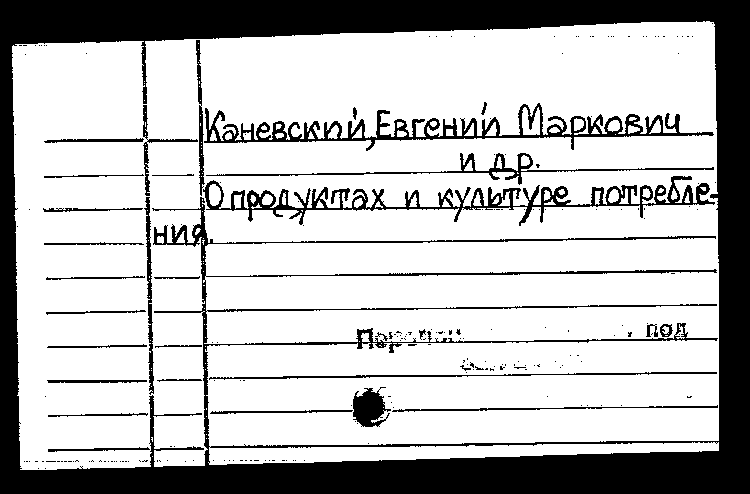 Каневский, Евгений Маркович
и др.
О продуктах и культуре потребле-
ния.
под